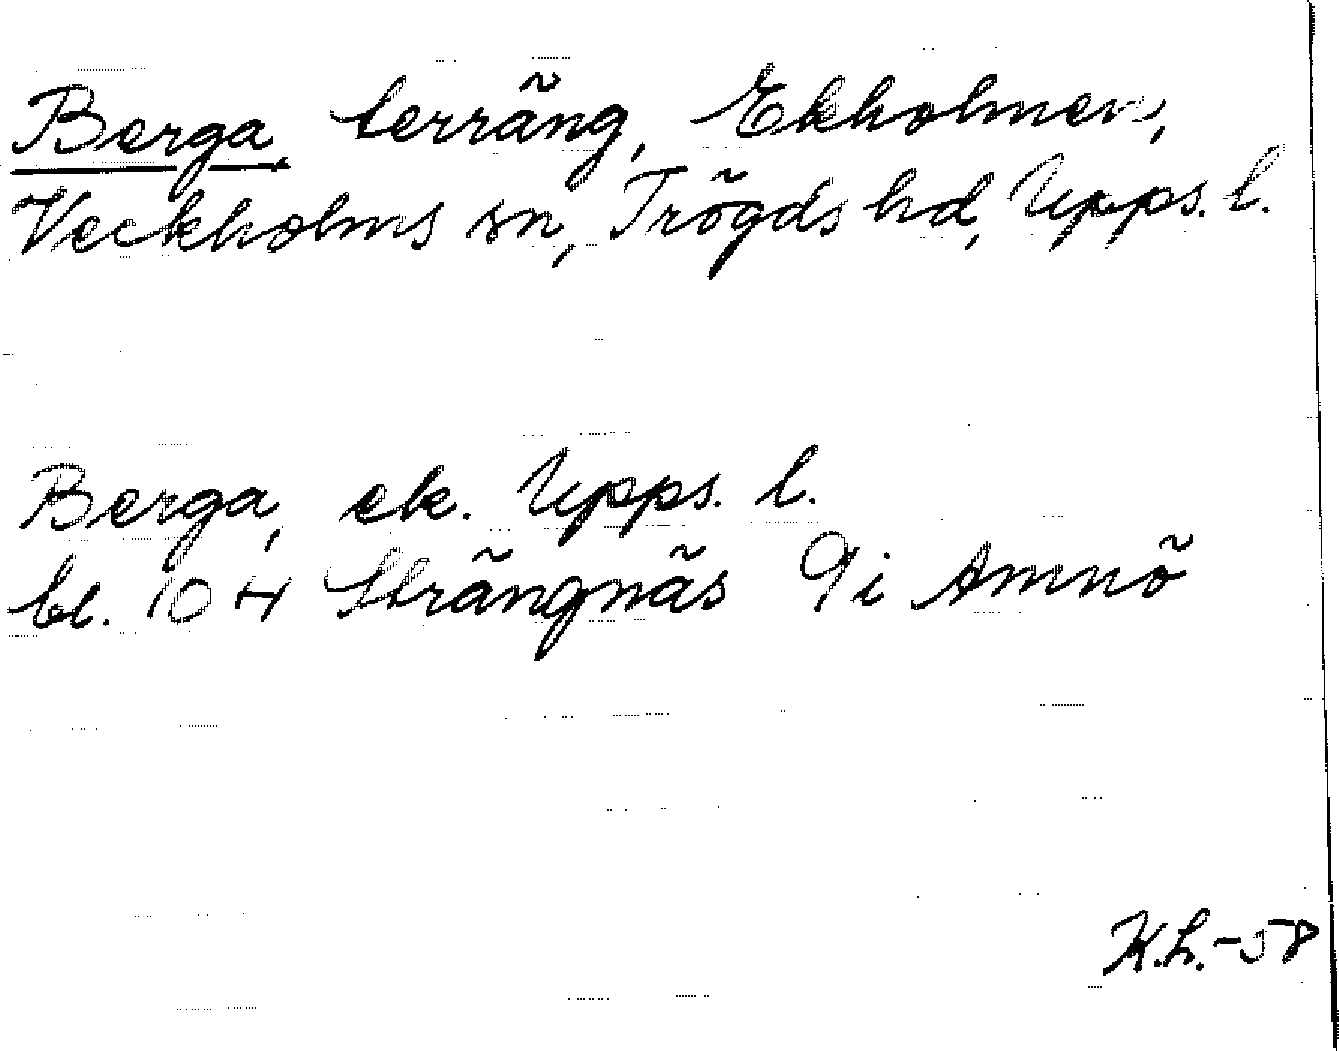 Berga, terräng, Ekholmen,
Veckholms sn, Trögds hd, Upps. l.
Berga, ek. Upps. l.
bl. 104 Strängnäs 9i Arnö
K.L.-58